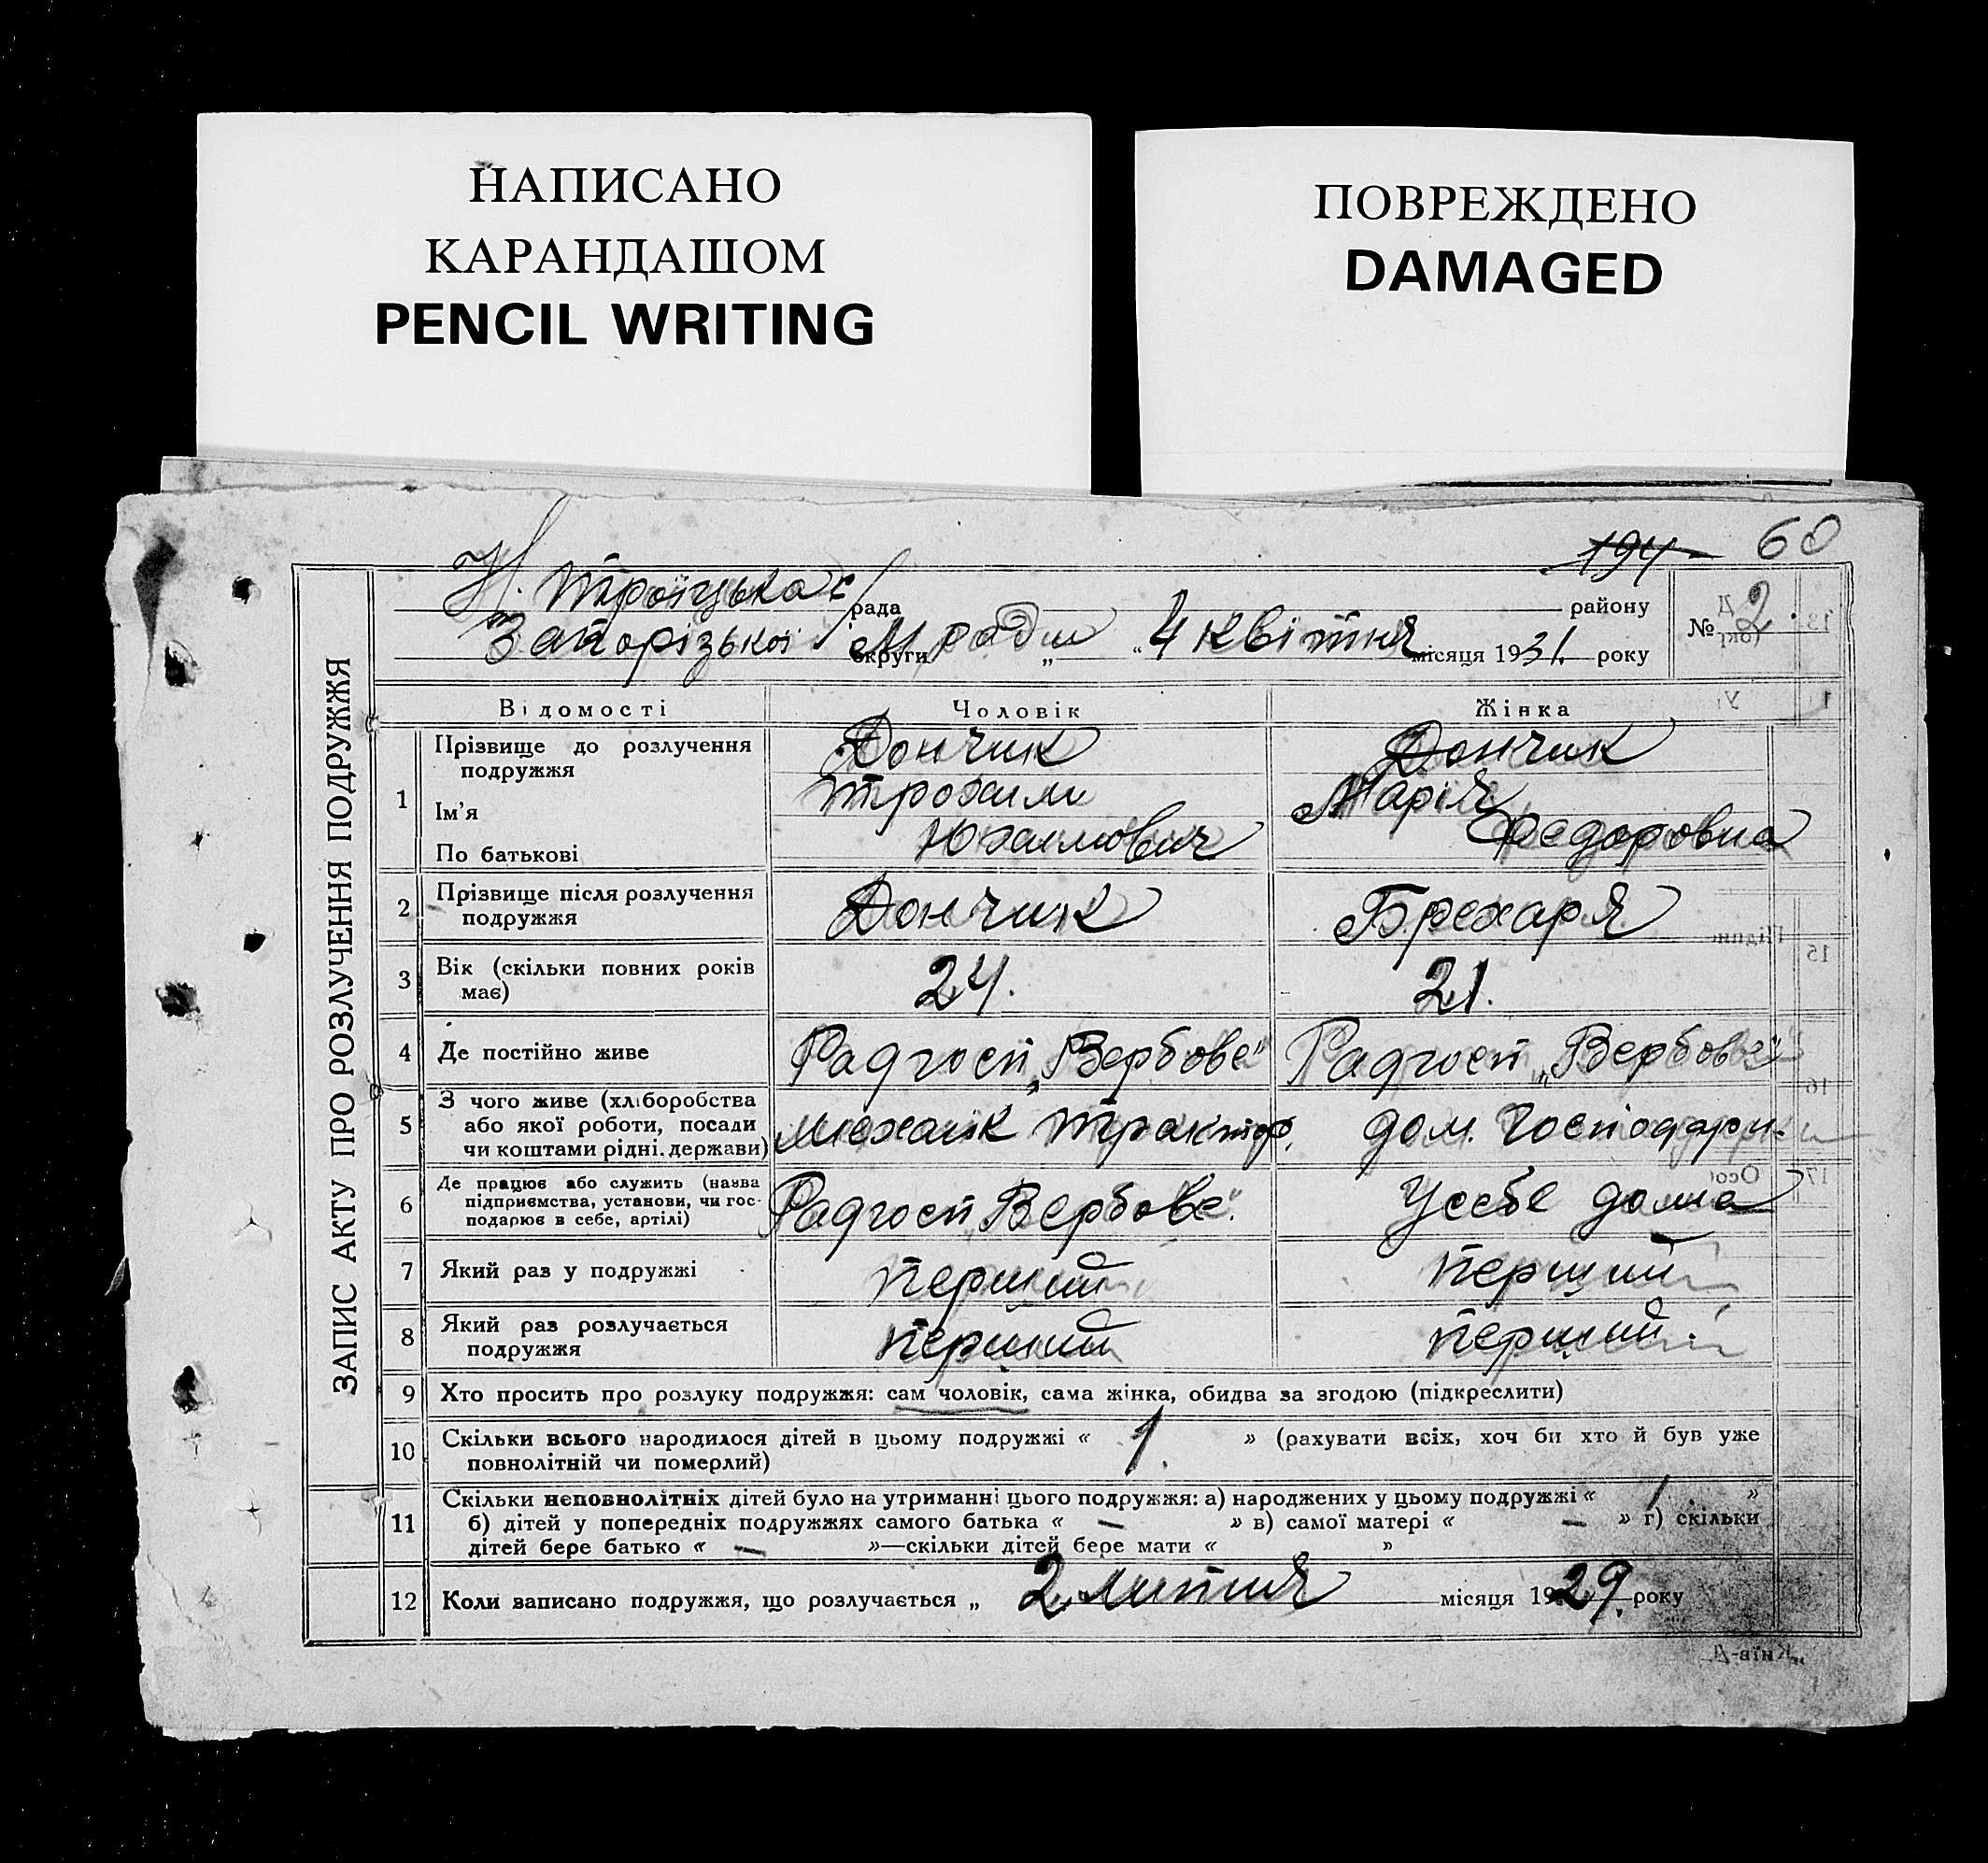 НАПИСАНО
КАРАНДАШОМ
PENCIL WRITING
ПОВРЕЖДЕНО
DAMAGED
194 60
Н. Троїцька с/рада району
Запорізької округи М ради „ “ 4 квітня місяця 1931. року
№ 2.
ЗАПИС АКТУ ПРО РОЗЛУЧЕННЯ ПОДРУЖЖЯ
Відомості Чоловік Жінка
1 Прізвище до розлучення подружжя Дончик Дончик
Ім'я Трохим Марія
По батькові Юхимович Федоровна
2 Прізвище після розлучення Дончик Брехаря
подружжя
3 Вік (скільки повних років 24. 21.
має)
4 Де постійно живе Радгосп „Вербове“ Радгосп „Вербове“
5 З чого живе (хліборобства
або якої роботи, посади механік трактор. дом. господари.
чи коштами рідні, держави)
6 Де працює або служить (назва
підприємства, установи, чи гос- Радгосп „Вербове“. У себе дома
подарює в себе, артілі)
7 Який раз у подружжі перший перший
8 Який раз розлучається перший перший.
подружжя
9 Хто просить про розлуку подружжя: сам чоловік, сама жінка, обидва за згодою (підкреслити)
10 Скільки всього народилося дітей в цьому подружжі « 1. » (рахувати всіх, хоч би хто й був уже
повнолітній чи померлий)
11 Скільки неповнолітніх дітей було на утриманні цього подружжя: а) народжених у цьому подружжі « 1. »
б) дітей у попередніх подружжях самого батька « — » в) самої матері « — » г) скільки
дітей бере батько « — »—скільки дітей бере мати « »
12 Коли записано подружжя, що розлучається „ 2 липня місяця 1929. року